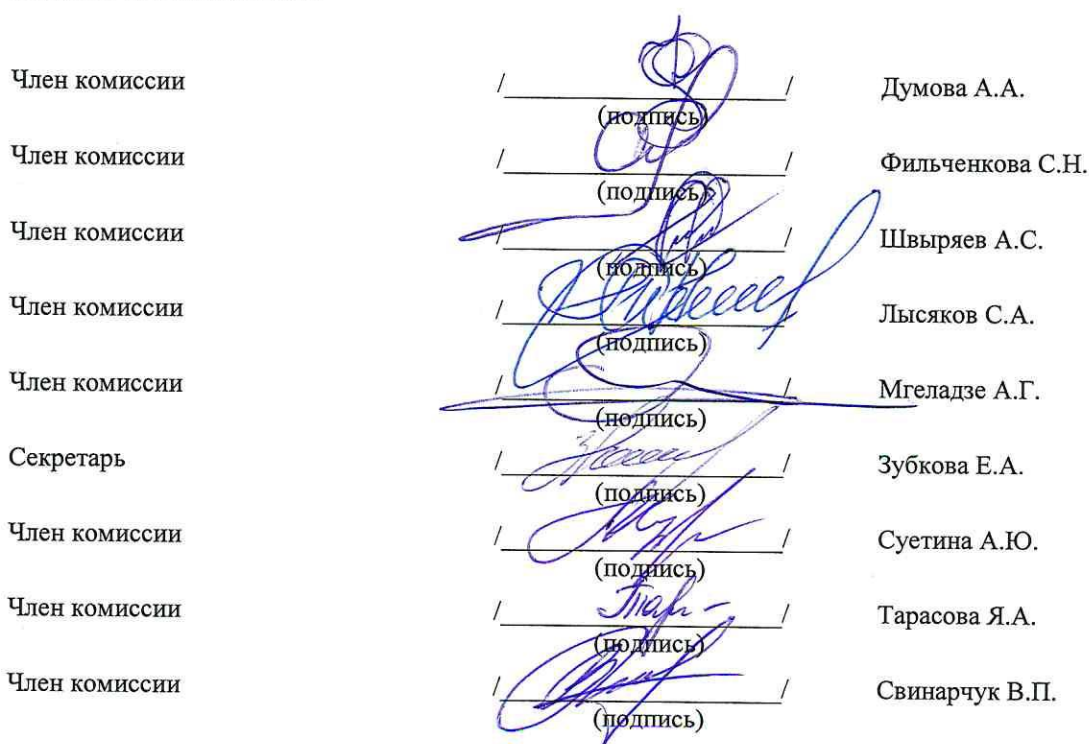 Член комиссии / / Думова А.А.
(подпись)
Член комиссии / / Фильченкова С.Н.
(подпись)
Член комиссии / / Швыряев А.С.
(подпись)
Член комиссии / / Лысяков С.А.
(подпись)
Член комиссии / / Мгеладзе А.Г.
(подпись)
Секретарь / / Зубкова Е.А.
(подпись)
Член комиссии / / Суетина А.Ю.
(подпись)
Член комиссии / / Тарасова Я.А.
(подпись)
Член комиссии / / Свинарчук В.П.
(подпись)